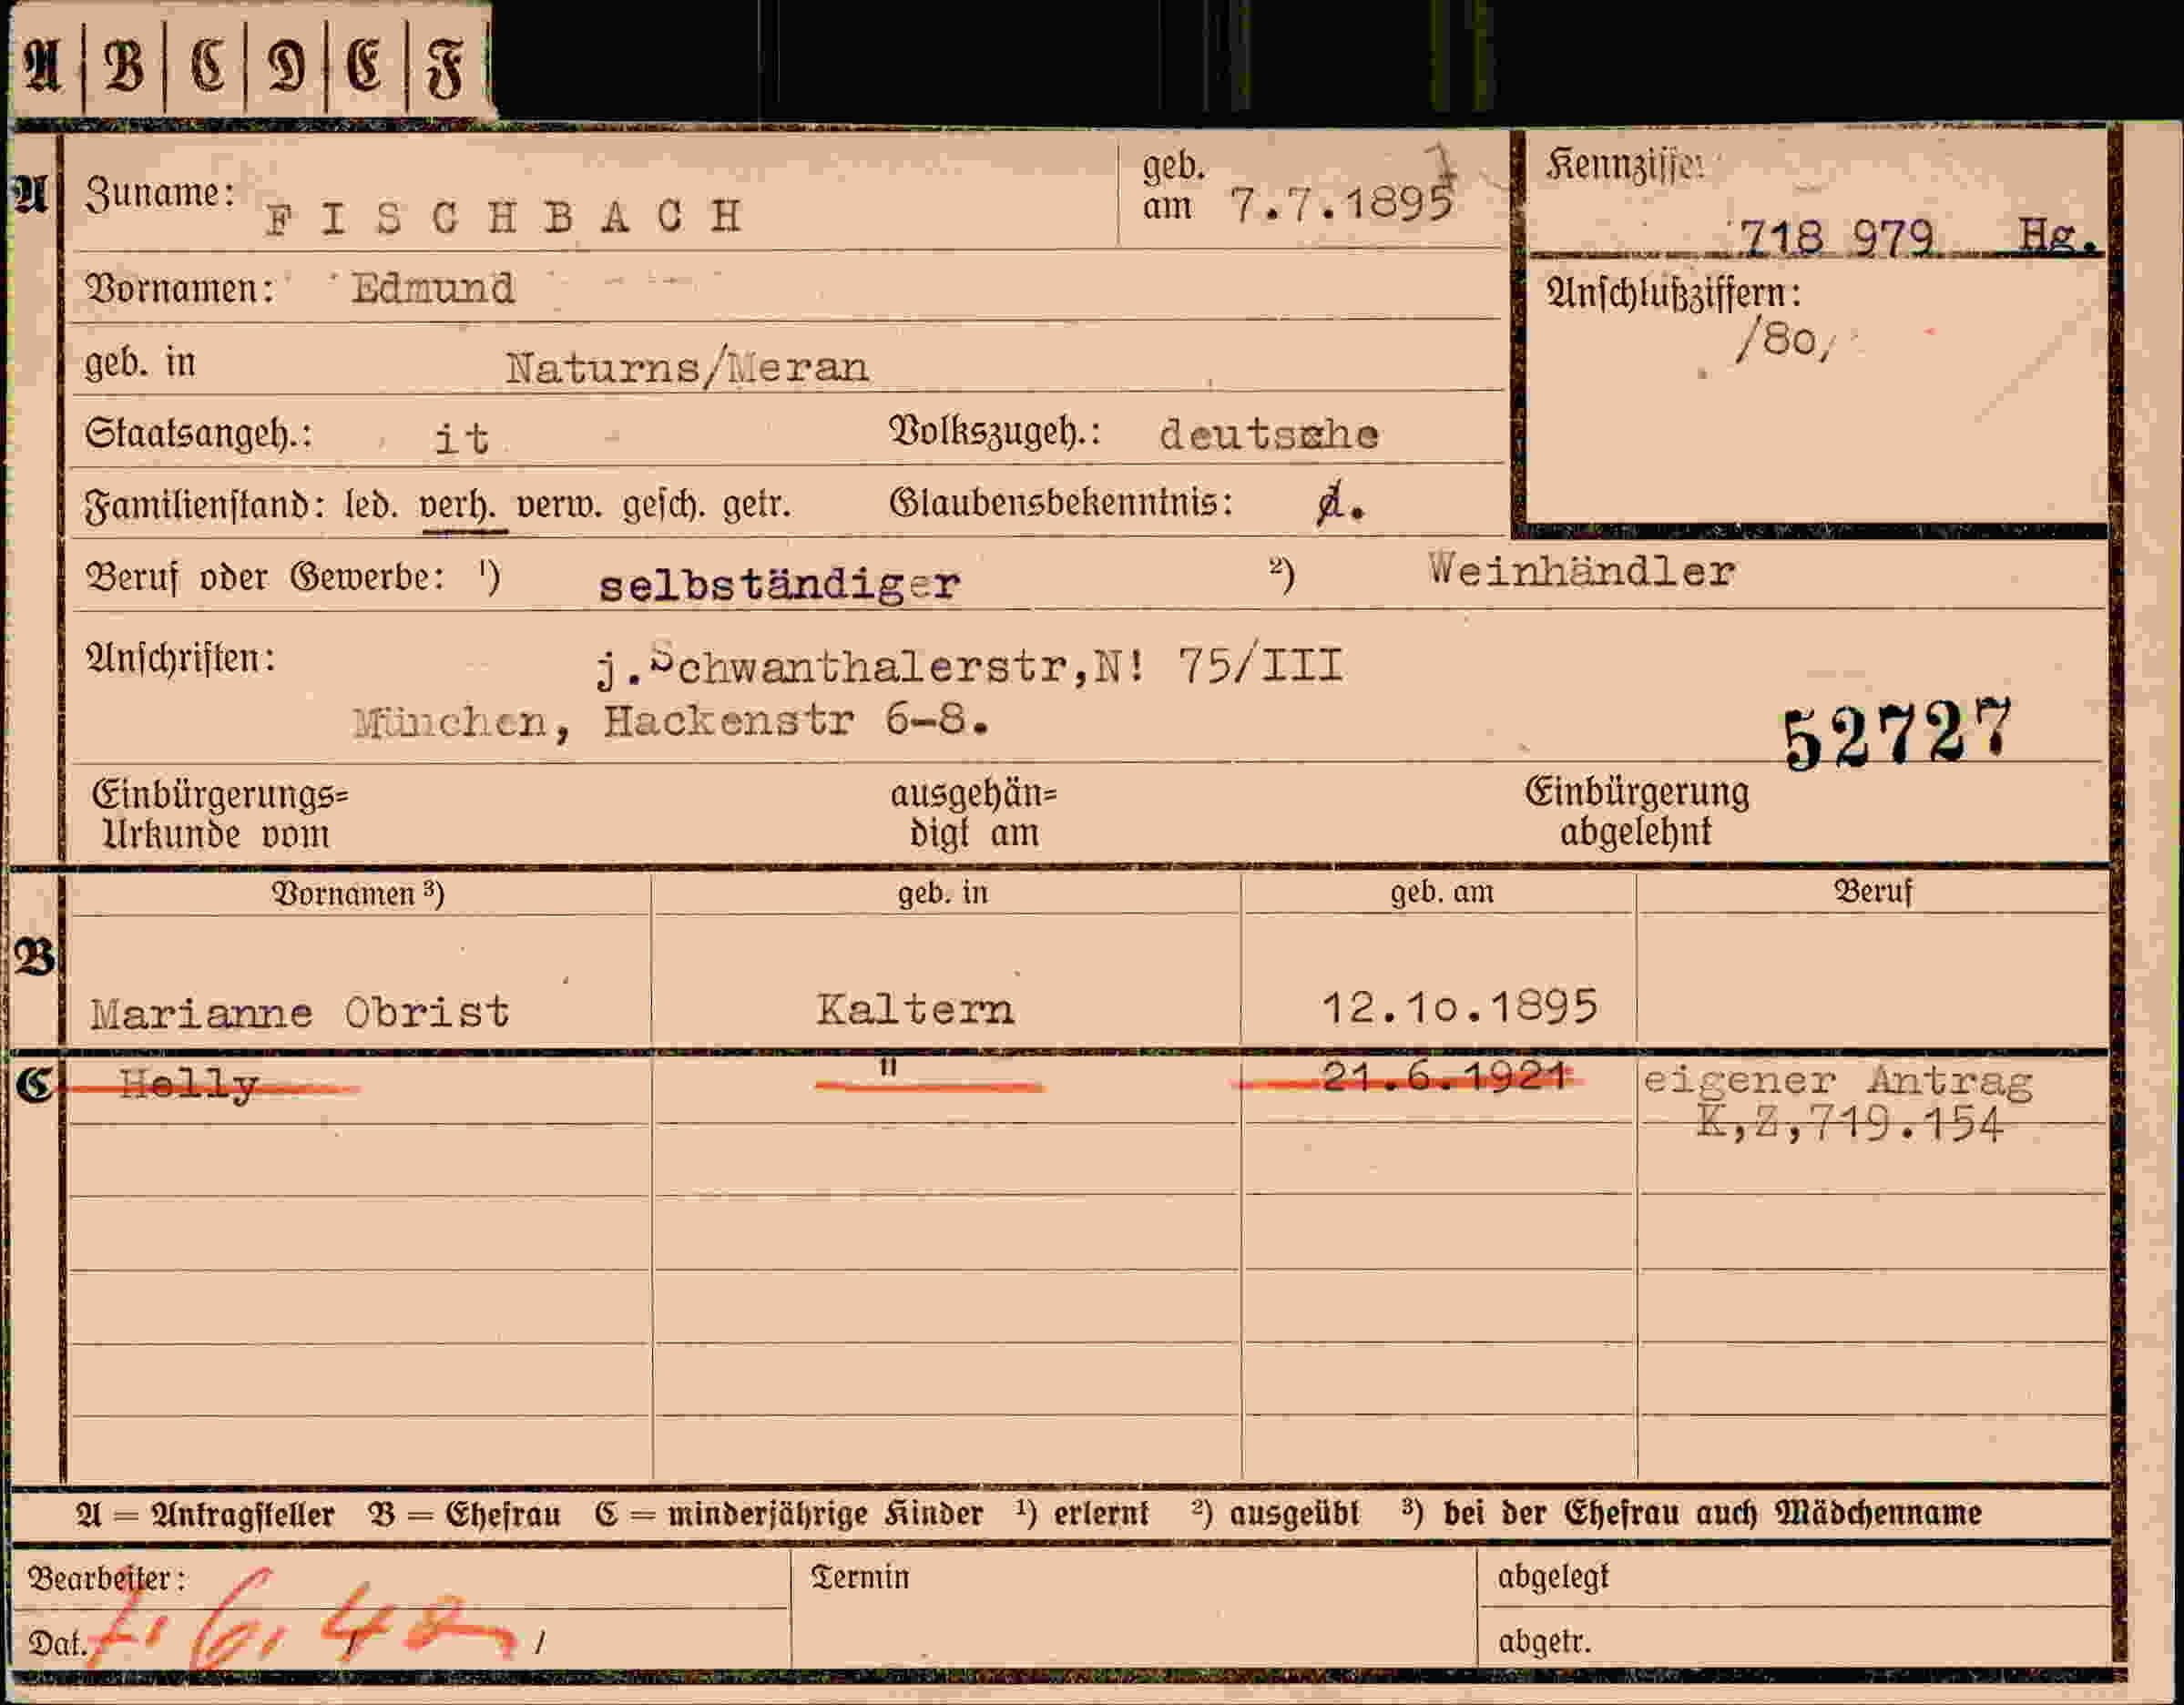 A | B | C | D | E | F
A Zuname: FISCHBACH geb. am 7.7.1895 Kennziffer
718 979 Hg.
Vornamen: Edmund Anschlußziffern:
/80,
geb. in Naturns/Meran
Staatsangeh.: it Volkszugeh.: deutsche
Familienstand: led. verh. verw. gesch. getr. Glaubensbekenntnis:
Beruf oder Gewerbe: ¹) selbständiger ²) Weinhändler
Anschriften: j.Schwanthalerstr,N! 75/III
München, Hackenstr 6-8. 52727
Einbürgerungs= ausgehän= Einbürgerung
Urkunde vom digt am abgelehnt
Vornamen ³) geb. in geb. am Beruf
B
Marianne Obrist Kaltern 12.1o.1895
C Helly " 21.6.1921 eigener Antrag
K,Z,719.154
A = Antragsteller B = Ehefrau C = minderjährige Kinder ¹) erlernt ²) ausgeübt ³) bei der Ehefrau auch Mädchenname
Bearbeiter: Termin abgelegt
Dat. 7.6.42 / abgetr.